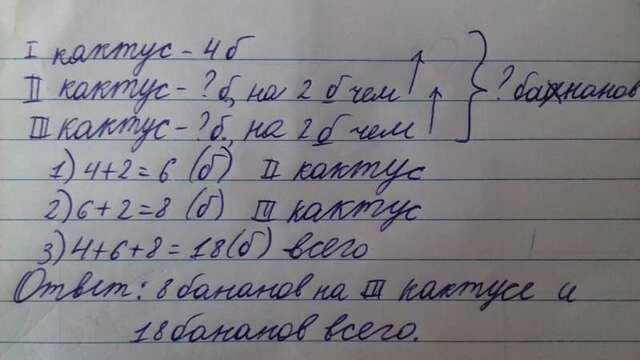 I кактус - 4б
II кактус - ?б, на 2 б чем
III кактус - ?б, на 2 б чем
? бананов
1) 4+2=6 (б) II кактус
2) 6+2=8 (б) III кактус
3) 4+6+8=18(б) всего
Ответ: 8 бананов на III кактусе и
18 бананов всего.